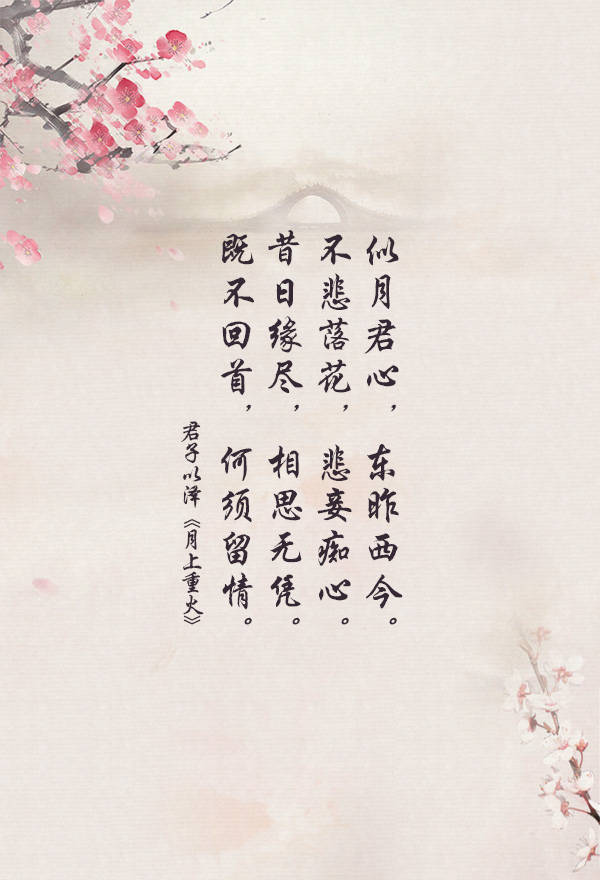 似月君心，东昨西今。
不悲落花，悲妾痴心。
昔日缘尽，相思无凭。
既不回首，何须留情。
君子以泽《月上重火》